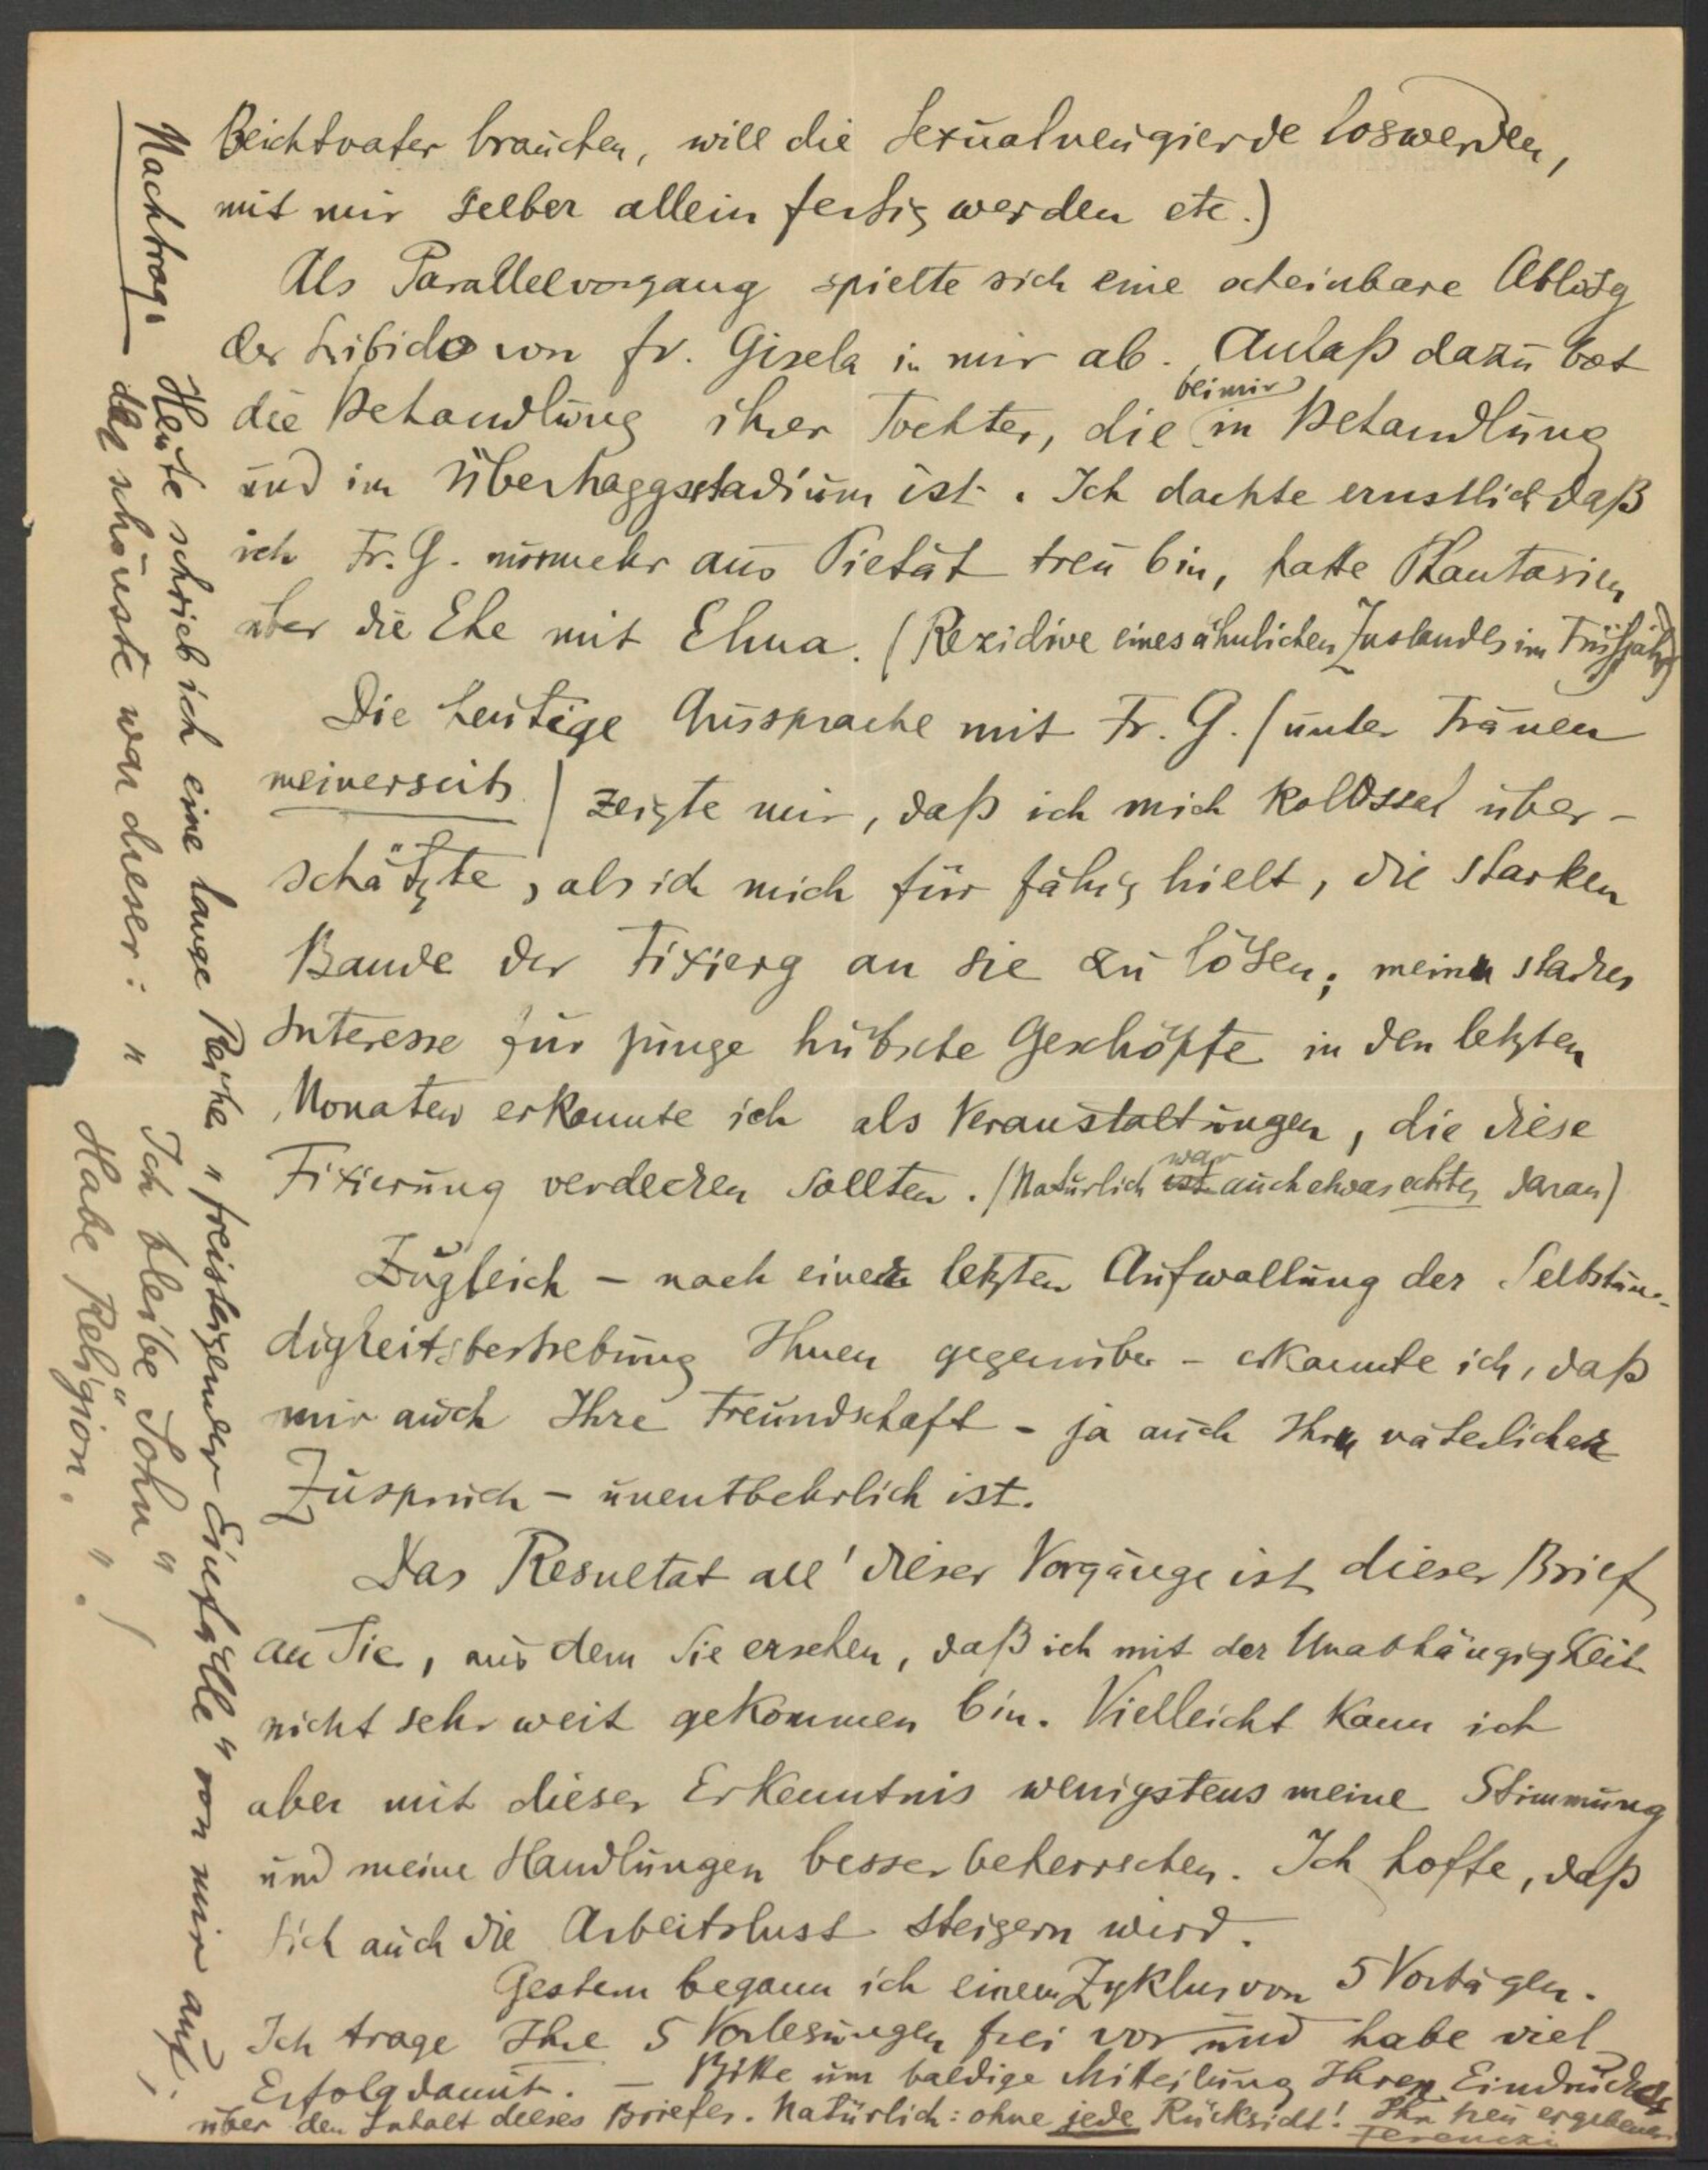 Beichtvater brauchen, will die Sexualneugierde loswerden,
mit mir selber allein fertig werden etc.)
Als Parallelvorgang spielte sich eine scheinbare Ablösg
der Libido von Fr. Gisela in mir ab. Anlaß dazu bot
die Behandlung ihrer Tochter, die bei mir in Behandlung
und im Übertraggsstadium ist. Ich dachte ernstlich daß
ich Fr. G. nurmehr aus Pietät treu bin, hatte Phantasien
über die Ehe mit Elma. (Rezidive eines ähnlichen Zustandes im Frühjahr)
Die heutige Aussprache mit Fr. G. (unter Tränen
meinerseits) zeigte mir, daß ich mich kolossal über-
schätzte, als ich mich für fähig hielt, die starken
Bande der Fixierg an sie zu lösen; mein starkes
Interesse für junge hübsche Geschöpfe in den letzten
Monaten erkannte ich als Veranstaltungen, die diese
Fixierung verdecken sollten. (Natürlich ist war auch etwas echtes daran)
Zugleich – nach einer letzten Aufwallung der Selbstän-
digkeitsbestrebung Ihnen gegenüber – erkannte ich, daß
mir auch Ihre Freundschaft – ja auch Ihr väterlicher
Zuspruch – unentbehrlich ist.
Das Resultat all' dieser Vorgänge ist dieser Brief
an Sie, aus dem Sie ersehen, daß ich mit der Unabhängigkeit
nicht sehr weit gekommen bin. Vielleicht kann ich
aber mit dieser Erkenntnis wenigstens meine Stimmung
und meine Handlungen besser beherrschen. Ich hoffe, daß
sich auch die Arbeitslust steigern wird.
Gestern begann ich einen Zyklus von 5 Vorträgen.
Ich trage Ihre 5 Vorlesungen frei vor und habe viel
Erfolg damit. – Bitte um baldige Mitteilung Ihres Eindruckes
über den Inhalt dieses Briefes. Natürlich: ohne jede Rücksicht! Ihr treu ergebener
Ferenczi
Nachtrag: Heute schrieb ich eine lange Reihe "freisteigender Einfälle" von mir auf;
der schönste war dieser: " Ich bleibe Sohn "
Habe Religion. " !